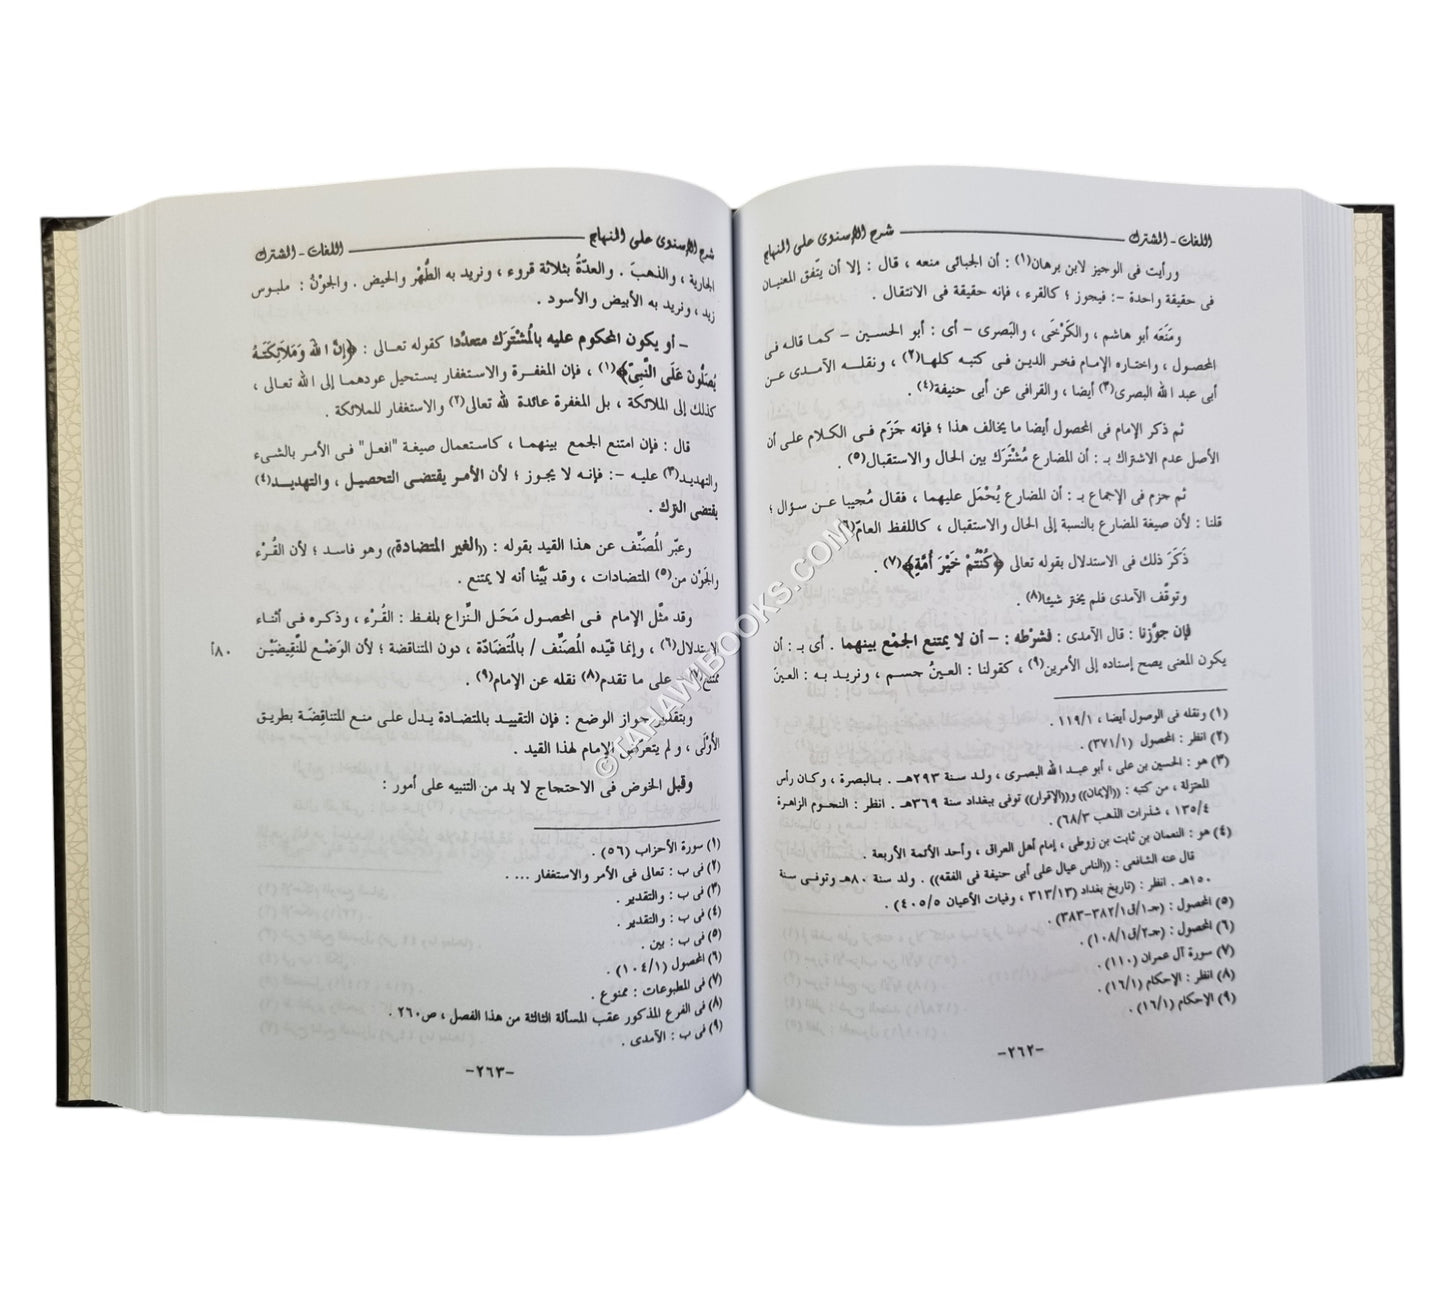 اللغات - المشترك شرح الإسنوى على المنهاج
ورأيت فى الوجيز لابن برهان(١) : أن الجبائى منعه ، قال : إلا أن يتّفق المعنيان
فى حقيقة واحدة -: فيجوز ؛ كالقرء ، فإنه حقيقة فى الانتقال .
ومَنَعَه أبو هاشم ، والكَرْخَى ، والبَصرى – أى : أبو الحسين – كما قاله فى
المحصول ، واختاره الإمام فخر الدين فى كتبه كلها(٢) ، ونقله الآمدى عن
أبى عبد الله البصرى(٣) أيضا ، والقرافى عن أبى حنيفة(٤) .
ثم ذكر الإمام فى المحصول أيضا ما يخالف هذا ؛ فإنه جَزَم فى الكلام على أن
الأصل عدم الاشتراك بـ : أن المضارع مُشْتَرَك بين الحال والاستقبال(٥) .
ثم جزم فى الإجماع بـ : أن المضارع يُحْمَل عليهما ، فقال مُجيبا عن سؤال ؛
قلنا : لأن صيغة المضارع بالنسبة إلى الحال والاستقبال ، كاللفظ العامّ(٦)
ذَكَرَ ذلك فى الاستدلال بقوله تعالى ﴿كُنْتُمْ خَيْرَ أُمَّةٍ﴾(٧) .
وتوقّف الآمدى فلم يختر شيئا(٨) .
فإن جوّزنا : قال الآمدى : لشرْطه : – أن لا يمتنع الجمْع بينهما . أى بـ : أن
يكون المعنى يصح إسناده إلى الأمرين(٩) ، كقولنا : العينُ جسم ، ونريد به : العينَ
(١) ونقله فى الوصول أيضا ، ١١٩/١ .
(٢) انظر : المحصول (٣٧١/١) .
(٣) هو : الحسين بن على ، أبو عبد الله البصرى ، ولد سنة ٢٩٣هـ . بالبصرة ، وكان رأس
المعتزلة ، من كتبه : ((الإيمان)) و((الإقرار)) توفى ببغداد سنة ٣٦٩هـ . انظر : النجوم الزاهرة
١٣٥/٤ ، شذرات الذهب ٦٨/٣) .
(٤) هو : النعمان بن ثابت بن زوطى ، إمام أهل العراق ، وأحد الأئمة الأربعة .
قال عنه الشافعى : ((الناس عيال على أبى حنيفة فى الفقه)) . ولد سنة ٨٠هـ وتوفى سنة
١٥٠هـ . انظر : (تاريخ بغداد ٣١٣/١٣ ، وفيات الأعيان ٤٠٥/٥) .
(٥) المحصول : (جـ١/ق٣٨٢/١-٣٨٣) .
(٦) المحصول : (جـ٢/ق١٠٨/١) .
(٧) سورة آل عمران (١١٠) .
(٨) انظر : الإحكام (١٦/١) .
(٩) الإحكام (١٦/١) .
-٢٦٢-
اللغات - المشترك شرح الإسنوى على المنهاج
الجارية ، والذهبَ . والعدّةُ بثلاثة قروء ، ونريد به الطُّهْر والحيض . والجوْنُ : ملبوس
زيد ، ونريد به الأبيض والأسود .
– أو يكون المحكوم عليه بالمُشْتَرَك متعدّدا كقوله تعالى : ﴿إِنَّ اللهَ وَمَلَائِكَتَهُ
يُصَلُّونَ عَلَى النَّبِىِّ﴾(١) ، فإن المغفرة والاستغفار يستحيل عودهما إلى الله تعالى ،
كذلك إلى الملائكة ، بل المغفرة عائدة لله تعالى(٢) والاستغفار للملائكة .
قال : فإن امتنع الجمع بينهما ، كاستعمال صيغة "افعل" فى الأمر بالشىء
والتهديد(٣) عليه -: فإنه لا يجوز ؛ لأن الأمر يقتضى التحصيل ، والتهديد(٤)
يقتضى الترك .
وعبّر المُصنِّف عن هذا القيد بقوله : ((الغير المتضادة)) وهو فاسد ؛ لأن القُرْء
والجَوْن من(٥) المتضادات ، وقد بيَّنا أنه لا يمتنع .
وقد مثّل الإمام فى المحصول مَحَل النِّزاع بلفظ : القُرْء ، وذكره فى أثناء
الاستدلال(٦) ، وإنما قيّده المُصنِّف / بالمُتَضادّة ، دون المتناقضة ؛ لأن الوَضْع للنَّقِيضَيْن ٨٠أ
ممتنع(٧) على ما تقدم(٨) نقله عن الإمام(٩) .
وبتقدير جواز الوضع : فإن التقييد بالمتضادة يدل على منع المتناقِضَة بطريق
الأَوْلَى ، ولم يتعرض الإمام لهذا القيد .
وقبل الخوض فى الاحتجاج لا بد من التنبيه على أمور :
(١) سورة الأحزاب (٥٦) .
(٢) فى ب : تعالى فى الأمر والاستغفار ... .
(٣) فى ب : والتقدير .
(٤) فى ب : والتقدير .
(٥) فى ب : بين .
(٦) المحصول (١٠٤/١) .
(٧) فى المطبوعات : ممنوع .
(٨) فى الفرع المذكور عقب المسألة الثالثة من هذا الفصل ، ص٢٦٠ .
(٩) فى ب : الآمدى .
-٢٦٣-
© TAHAWIBOOKS.COM